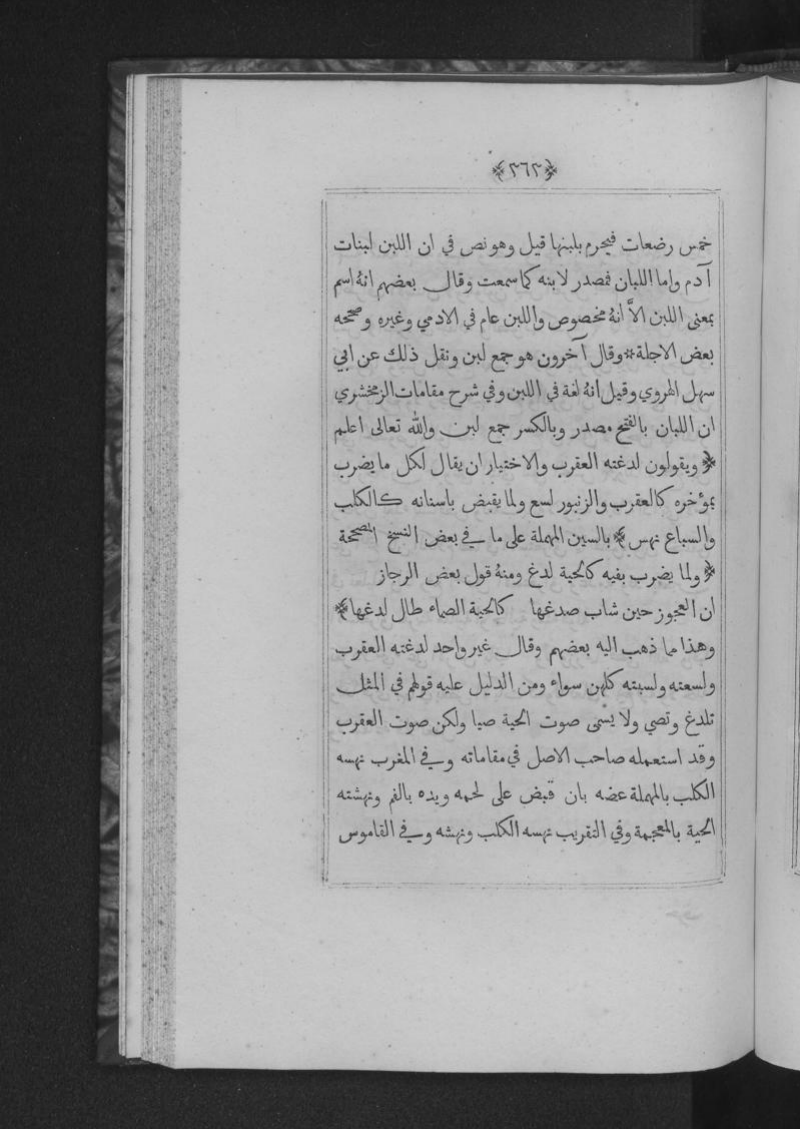 ﴿٣٦٢﴾
خمس رضعات فيحرم بلبنها قيل وهو نص في ان اللبن لبنات
آدم واما اللبان فمصدر لابنه كما سمعت وقال بعضهم انهُ اسم
بمعنى اللبن الاَّ انهُ مخصوص واللبن عام في الادمي وغيره وصححه
بعض الاجلة * وقال آخرون هو جمع لبن ونقل ذلك عن ابي
سهل الهروي وقيل انهُ لغة في اللبن وفي شرح مقامات الزمخشري
ان اللبان بالفتح مصدر وبالكسر جمع لبن والله تعالى اعلم
﴿ ويقولون لدغته العقرب والاختيار ان يقال لكل ما يضرب
بمؤخره كالعقرب والزنبور لسع ولما يقبض باسنانه كالكلب
والسباع نهس ﴾ بالسين المهملة على ما في بعض النسخ المصححة
﴿ ولما يضرب بفيه كالحية لدغ ومنهُ قول بعض الرجاز
ان العجوز حين شاب صدغها كالحية الصماء طال لدغها ﴾
وهذا مما ذهب اليه بعضهم وقال غير واحد لدغته العقرب
ولسعته ولسبته كلهن سواء ومن الدليل عليه قولهم في المثل
تلدغ وتصي ولا يسمى صوت الحية صيا ولكن صوت العقرب
وقد استعمله صاحب الاصل في مقاماته وفي المغرب نهسه
الكلب بالمهملة عضه بان قبض على لحمه ويده بالفم ونهشته
الحية بالمعجمة وفي التقريب نهسه الكلب ونهشه وفي القاموس